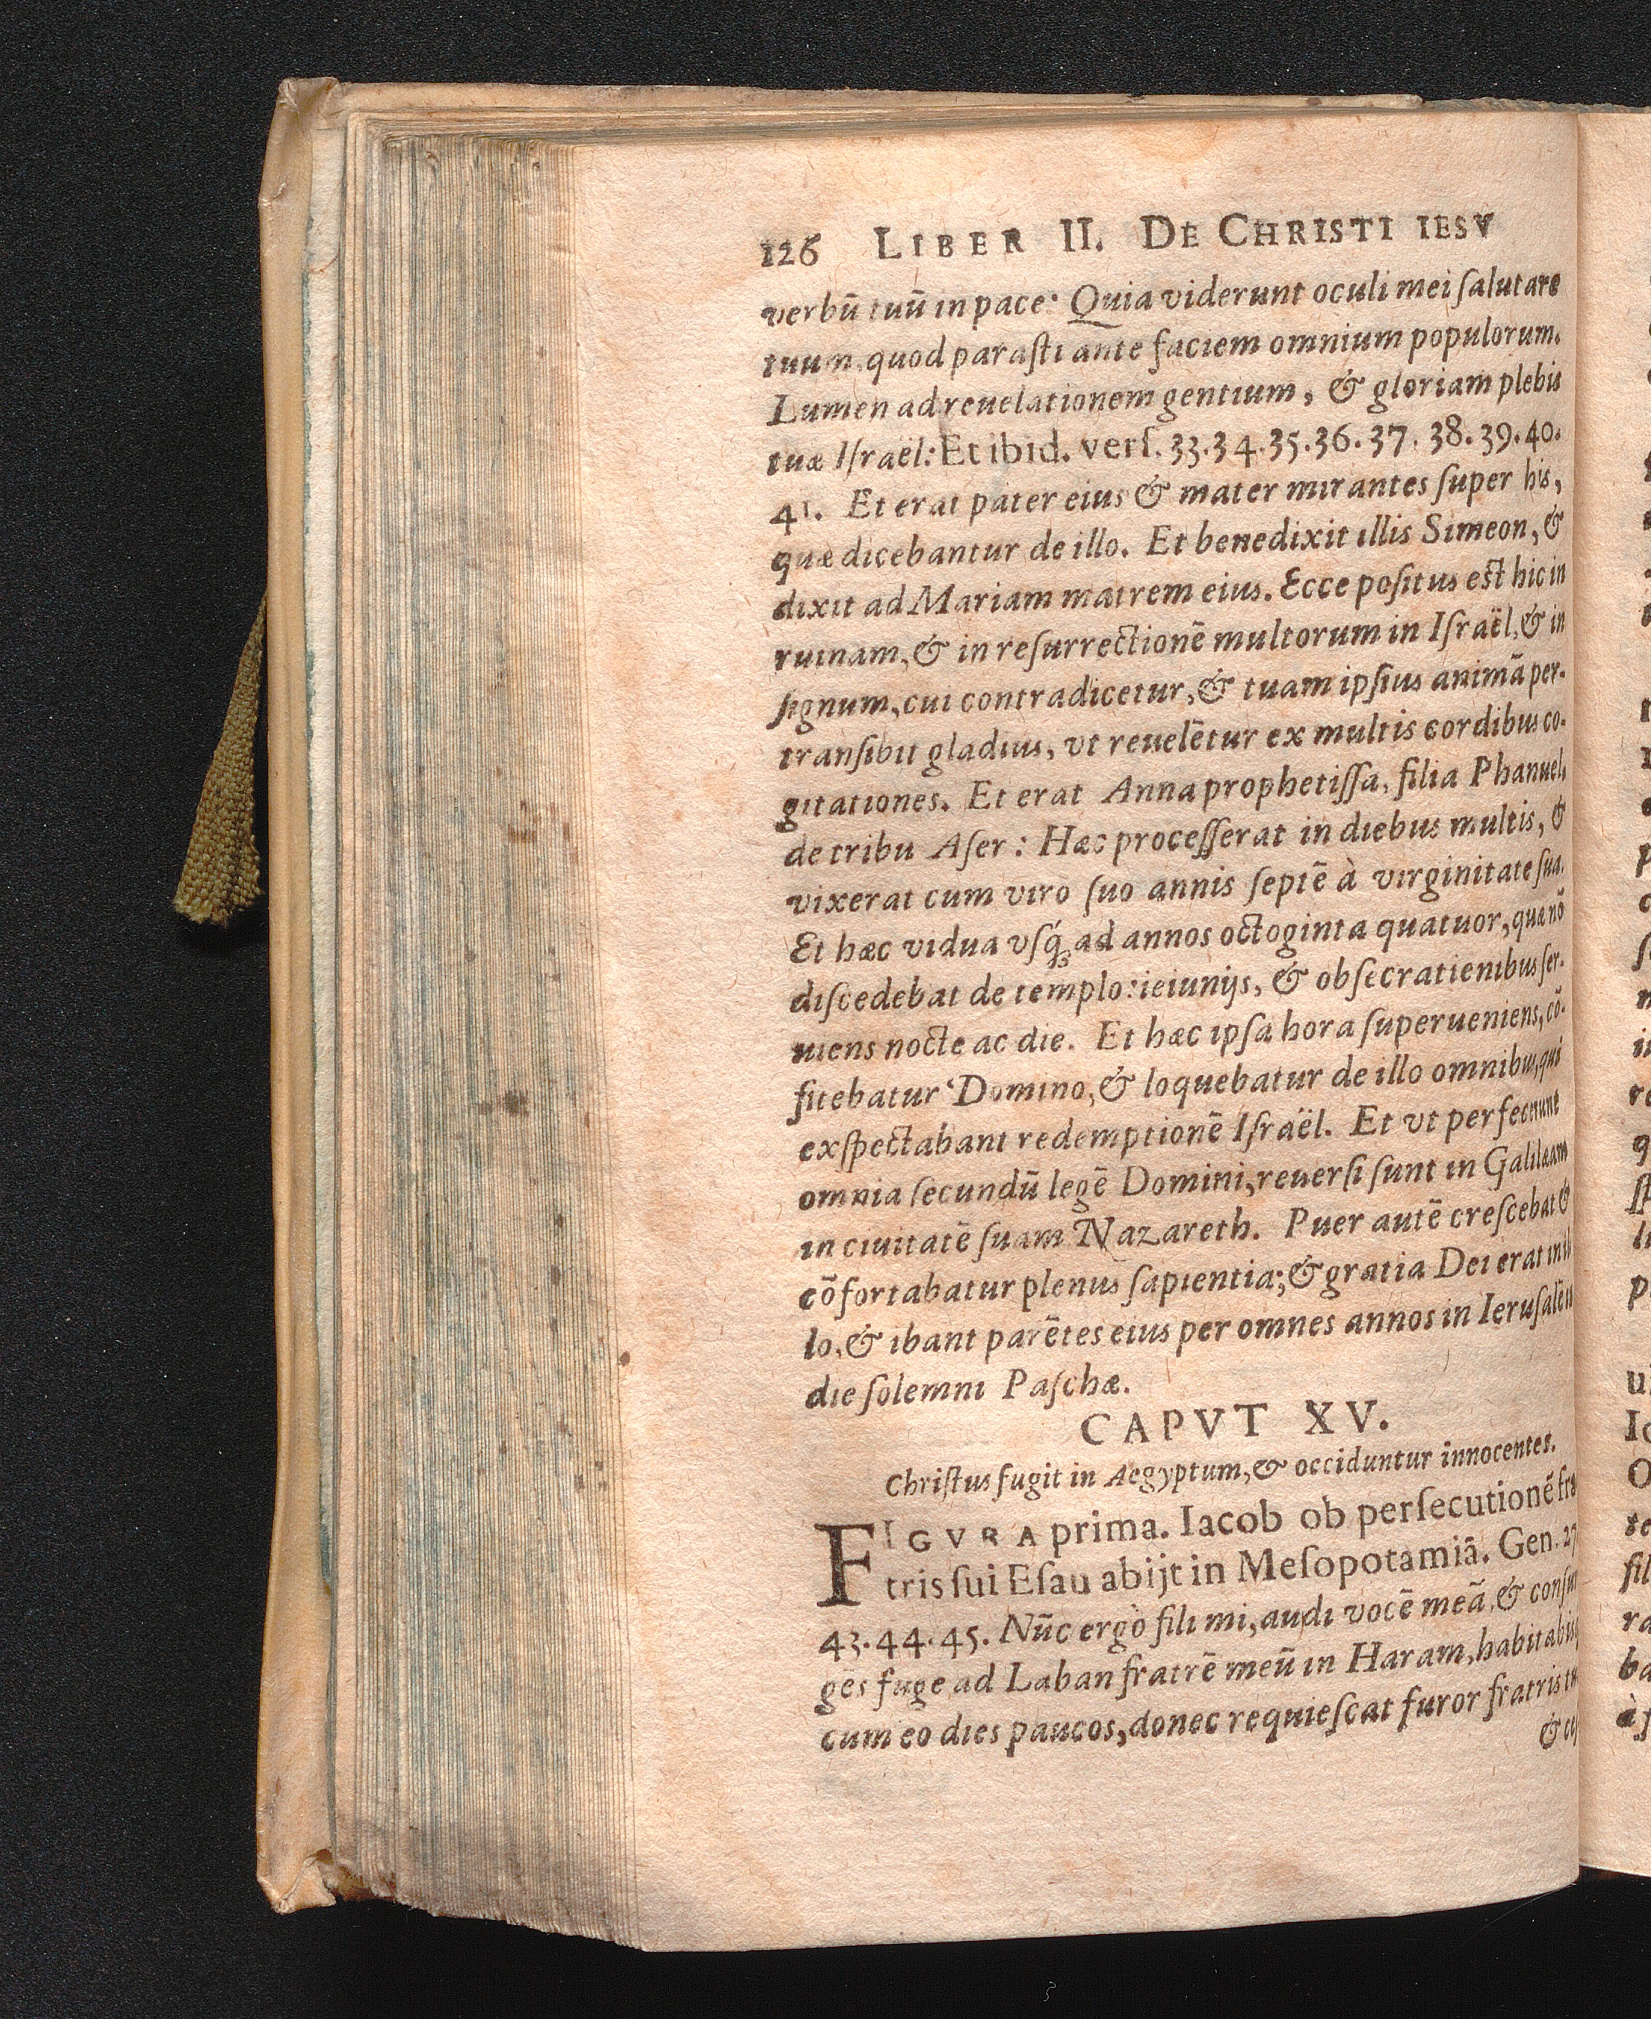 126 LIBER II. DE CHRISTI IESV
verbū tuū in pace: Quia viderunt oculi mei ſalutare
tuum, quod paraſti ante faciem omnium populorum.
Lumen ad reuelationem gentium, & gloriam plebis
tuæ Iſraël: Et ibid. verſ. 33.34.35.36.37.38.39.40.
41. Et erat pater eius & mater mirantes ſuper his,
quæ dicebantur de illo. Et benedixit illis Simeon, &
dixit ad Mariam matrem eius. Ecce poſitus eſt hic in
ruinam, & in reſurrectionē multorum in Iſraël, & in
ſignum, cui contradicetur, & tuam ipſius animā per-
tranſibit gladius, vt reuelētur ex multis cordibus co-
gitationes. Et erat Anna prophetiſſa, filia Phanuel,
de tribu Aſer: Hæc proceſſerat in diebus multis, &
vixerat cum viro ſuo annis ſeptē à virginitate ſua.
Et hæc vidua vſq́; ad annos octoginta quatuor, quæ nō
diſcedebat de templo: ieiunijs, & obſecratienibus ſer-
uiens nocte ac die. Et hæc ipſa hora ſuperueniens, cō-
fitebatur Domino, & loquebatur de illo omnibus, qui
exſpectabant redemptionē Iſraël. Et vt perfecerunt
omnia ſecundū legē Domini, reuerſi ſunt in Galilæam
in ciuitatē ſuam Nazareth. Puer autē creſcebat &
cōfortabatur plenus ſapientia; & gratia Dei erat in il
lo, & ibant parētes eius per omnes annos in Ieruſalē
die ſolemni Paſchæ.
CAPVT XV.
Chriſtus fugit in Aegyptum, & occiduntur innocentes.
FIGVRA prima. Iacob ob perſecutionē fra
tris ſui Eſau abijt in Meſopotamiā. Gen. 27
43.44.45. Nūc ergò fili mi, audi vocē meā, & conſur
gēs fuge ad Laban fratrē meū in Haram, habitabis
cum eo dies paucos, donec requieſcat furor fratris tu
&